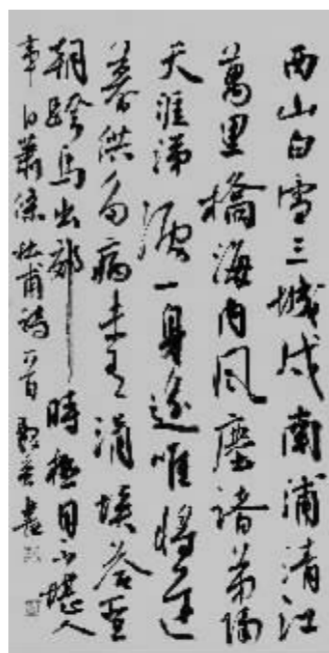 西山白雪三城戍南浦清江
萬里橋海内風塵諸弟隔
天涯涕淚一身遥唯將遲
暮供多病未有涓埃答聖
朝跨馬出郊時極目不堪人
事日蕭條杜甫詩一首書